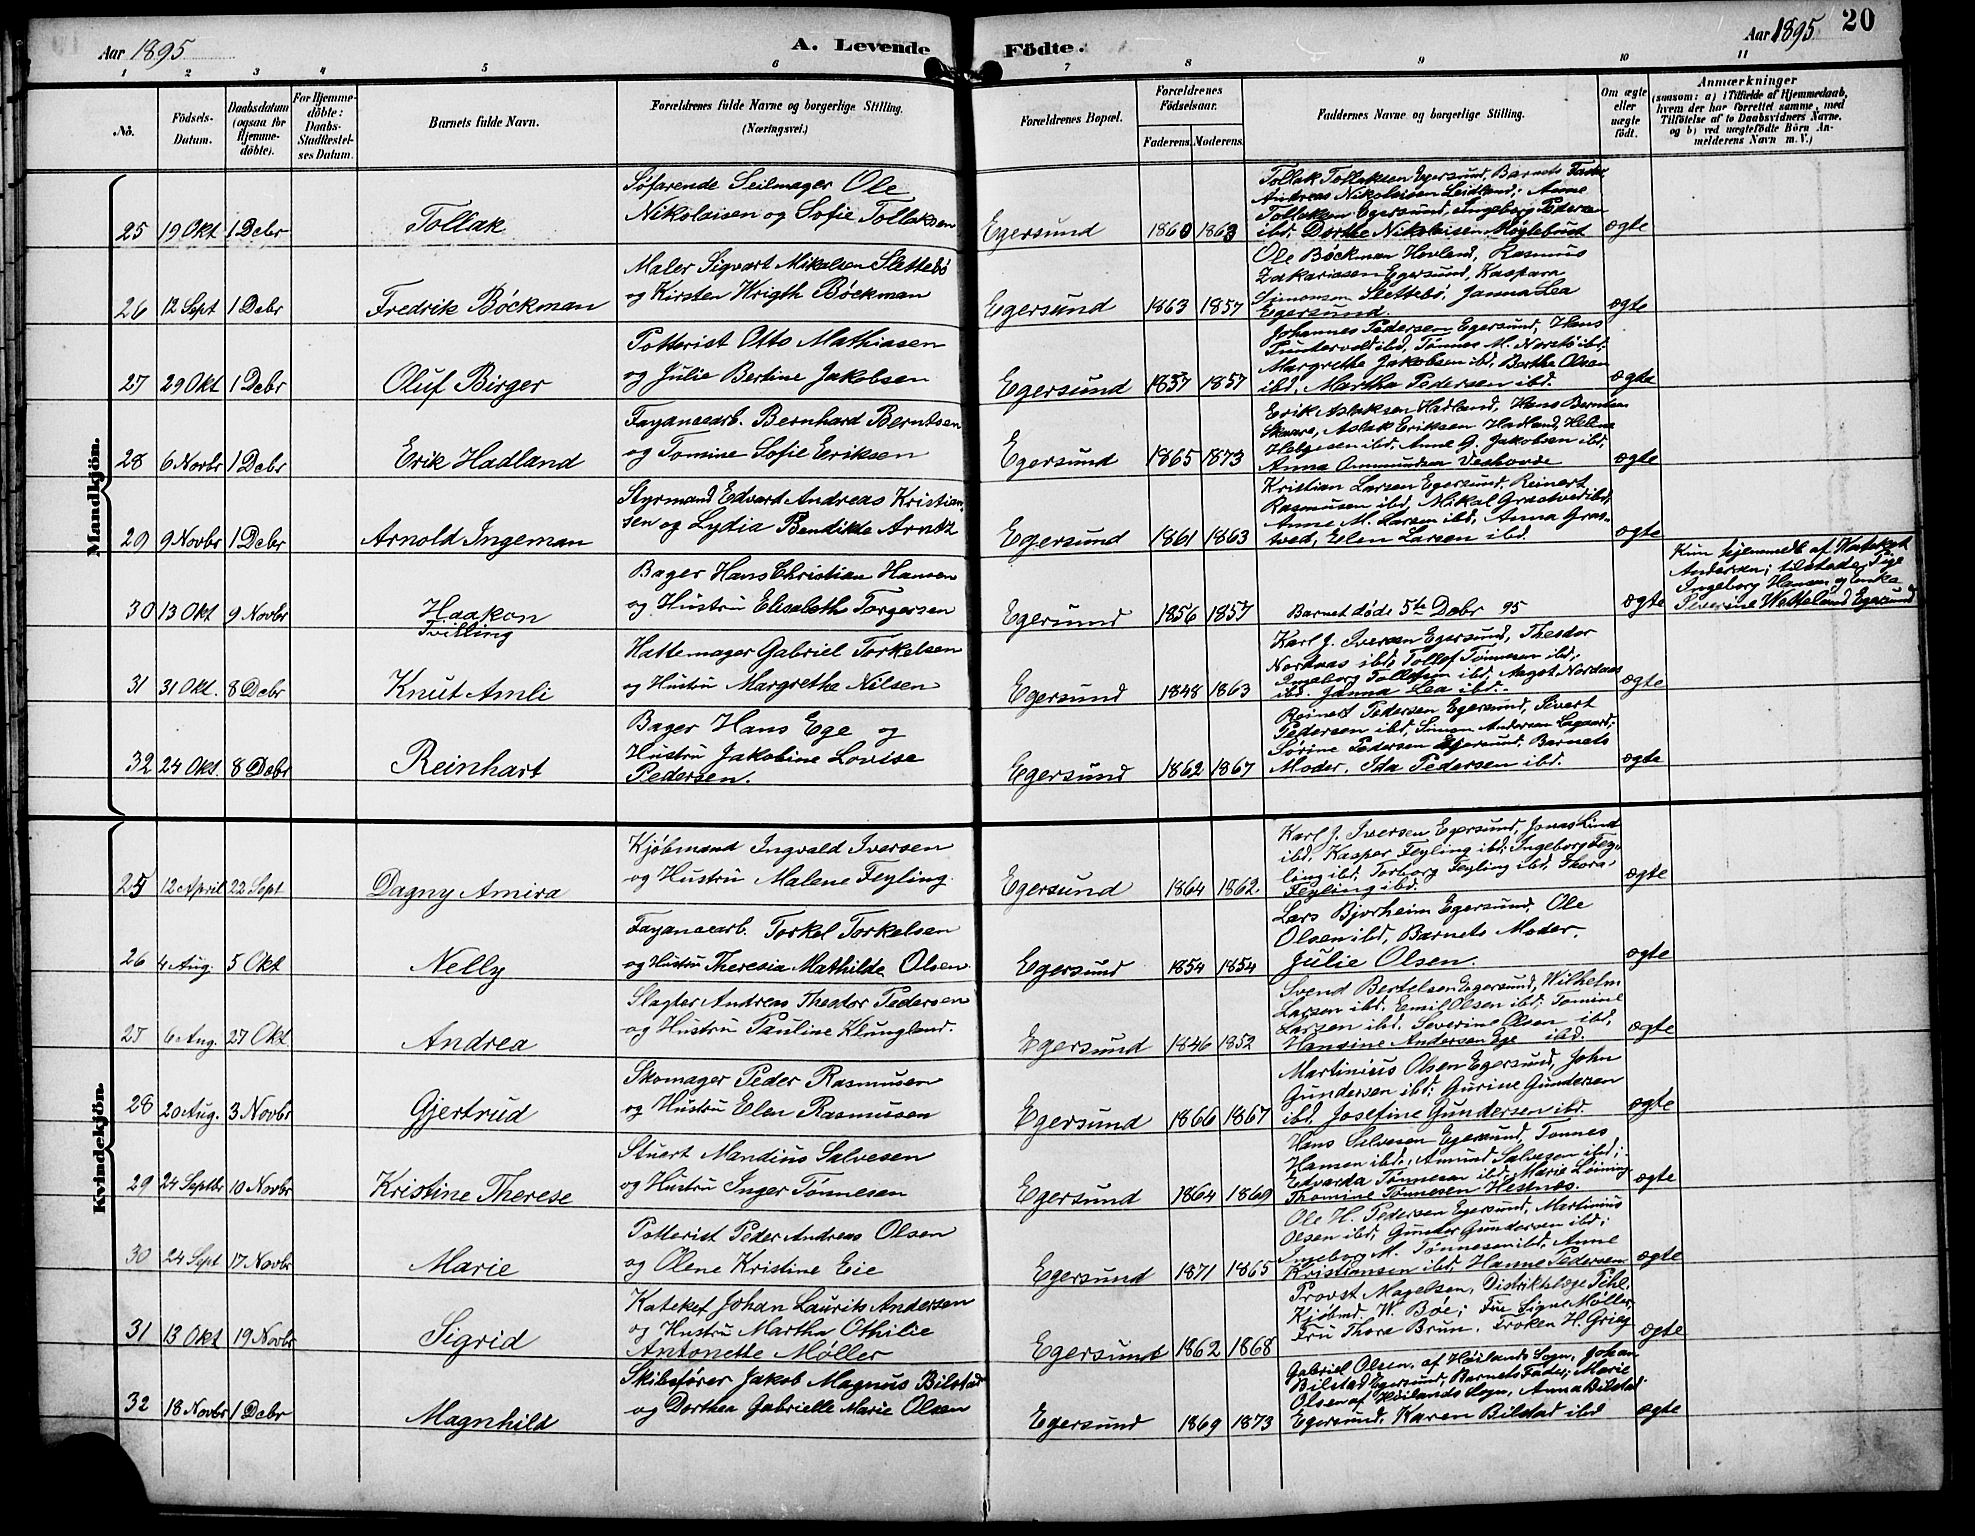 Aar 1895
A. Levende Födte.
Aar 1895
20
1 2 3 4 5 6 7 8 9 10 11
No.
Födsels-
Datum.
Daabsdatum
(ogsaa for
Hjemme-
döbte).
For Hjemme-
döbte:
Daabs-
Stadfestel-
ses Datum.
Barnets fulde Navn.
Forældrenes fulde Navne og borgerlige Stilling.
(Næringsvei.)
Forældrenes Bopæl.
Forældrenes
Födselsaar.
Faderens.
Moderens.
Faddernes Navne og borgerlige Stilling.
Om ægte
eller
uægte
födt.
Anmærkninger
(saasom: a) i Tilfælde af Hjemmedaab,
hvem der har forrettet samme, med
Tilföielse af to Daabsvidners Navne,
og b) ved uægtefödte Börn An-
melderens Navn m. V.)
Mandkjön.
25 19 Okt 1 Debr Tollak
Søfarende Seilmager Ole
Nikolaisen og Sofie Tollaksen
Egersund 1860 1863
Tollak Tollaksen Egersund, Barnets Fader,
Andreas Nikolaisen Leidland; Anne
Tollaksen Egersund, Ingeborg Pedersen
ibd, Dorthe Nikolaisen Møglebust
ægte
26 12 Sept 1 Debr Fredrik Bøckman
Maler Sigvart Mikalsen Slettebø
og Kirsten Wrigth Bøckman
Egersund 1863 1857
Ole Bøckman Hovland, Rasmus
Zakariassen Egersund, Kaspara
Simonsen Slettebø, Janna Lea
Egersund.
ægte
27 29 Okt 1 Debr Oluf Birger
Potterist Otto Mathiasen
og Julie Bertine Jakobsen
Egersund 1857 1857
Johannes Pedersen Egersund, Hans
ibd, Tønnes M. ibd.
Margrethe Jakobsen ibd, Berthe Olsen
ibd, Martha Pedersen ibd.
ægte
28 6 Novbr 1 Debr Erik Hadland
Fayancearb. Bernhard Berntsen
og Tomine Sofie Eriksen
Egersund 1865 1873
Erik Aslaksen Hadland, Hans Berntsen
Skaare, Aslak Eriksen Hadland, Helene
Helgesen ibd, Anne G. Jakobsen ibd,
Anna Ommundsen
ægte
29 9 Novbr 1 Debr Arnold Ingeman
Styrmand Edvard Andreas Kristian-
sen og Lydia Bendikte Arntz
Egersund 1861 1863
Kristian Larsen Egersund, Reinert
Rasmusen ibd, Mikal Graatved ibd,
Anne M. Larsen ibd, Anna Graa-
tved, Elen Larsen ibd.
ægte
30 13 Okt 9 Novbr Haakon
Tvilling
Bager Hans Christian Hansen
og Hustru Elisabeth Torgersen
Egersund 1856 1857
Barnet døde 5te Debr 95
ægte
Kun hjemmedb. af Kateket
Andersen; tilstede: Pige
Ingeborg Hansen og enke
Severine Wetteland Egersund
31 31 Okt. 8 Debr Knut Amli
Hattemager Gabriel Torkelsen
og Hustru Margrethe Nilsen
Egersund 1848 1863
Karl J. Iversen Egersund, Theodor
Nordaas ibd, Tollef Tønnesen ibd;
Ingeborg Tollefsen ibd, Aagot Nordaas
ibd. Janna Lea ibd.
ægte
32 24 Okt. 8 Debr Reinhart
Bager Hans Ege og
Hustru Jakobine Lovise
Pedersen.
Egersund 1862 1867
Reinert Pedersen Egersund, Sivert
Pedersen ibd, Simon Andersen Lagaard;
Sørine Pedersen Egersund, Barnets
Moder, Ida Pedersen ibd.
ægte
Kvindekjön.
25 12 April 22 Sept Dagny Amira
Kjøbmand Ingvald Iversen
og Hustru Malene Feyling.
Egersund 1864 1862.
Karl J. Iversen Egersund, Jonas Lind
ibd, Kasper Feyling ibd; Ingeborg Fey-
ling ibd, Torborg Feyling ibd, Thora
Feyling ibd.
ægte
26 4 Aug. 5 Okt Nelly
Fayancearb. Torkel Torkelsen
og Hustru Theresia Mathilde Olsen
Egersund 1854 1854
Lars Bjorheim Egersund, Ole
Olsen ibd, Barnets Moder,
Julie Olsen.
ægte
27 6 Aug. 27 Okt Andrea
Slagter Andreas Theodor Pedersen
og Hustru Pauline Klungland.
Egersund 1846 1852
Svend Bertelsen Egersund, Wilhelm
Larsen ibd. Emil Olsen ibd; Tomine
Larsen ibd. Severine Olsen ibd,
Hansine Andersen Ege ibd.
ægte
28 20 Aug. 3 Novbr Gjertrud
Skomager Peder Rasmusen
og Hustru Elen Rasmusen
Egersund 1866 1867
Martinius Olsen Egersund, John
Gundersen ibd; Gurine Gundersen
ibd, Josefine Gundersen ibd.
ægte
29 24 Septbr 10 Novbr Kristine Therese
Stuert Mandius Salvesen
og Hustru Inger Tønnesen
Egersund 1864 1869
Hans Salvesen Egersund, Tønnes
Hansen ibd, Amund Salvesen ibd;
Edvarda Tønnesen ibd, Marie Løining
Thomine Tønnesen Hestnæs.
ægte
30 24 Sept 17 Novbr Marie
Potterist Peder Andreas Olsen
og Olene Kristine Eie
Egersund 1871 1865
Ole H. Pedersen Egersund, Martinius
Olsen ibd, Gunder Gundersen ibd;
Ingeborg M. Tønnesen ibd, Anne
Kristiansen ibd, Hanne Pedersen
ægte
31 13 Okt 19 Novbr Sigrid
Kateket Johan Laurits Andersen
og Hustru Martha Othilie
Antonette Møller
Egersund 1862 1868
Provst Magelsen, Distriktslæge Pihl,
Kjøbmd. W. Bøe; Fru Signe Møller,
Fru Thora Brun, Frøken H. Grieg
ægte
32 18 Novbr 1 Debr Magnhild
Skibsfører Jakob Magnus Bilstad
og Dorthea Gabrielle Marie Olsen
Egersund 1869 1873
Gabriel Olsen, af Høilands Sogn, Johan
Bilstad Egersund, Barnets Fader, Marie
Olsen af Høilands Sogn, Anna Bilstad
Egersund, Karen Bilstad ibd
ægte